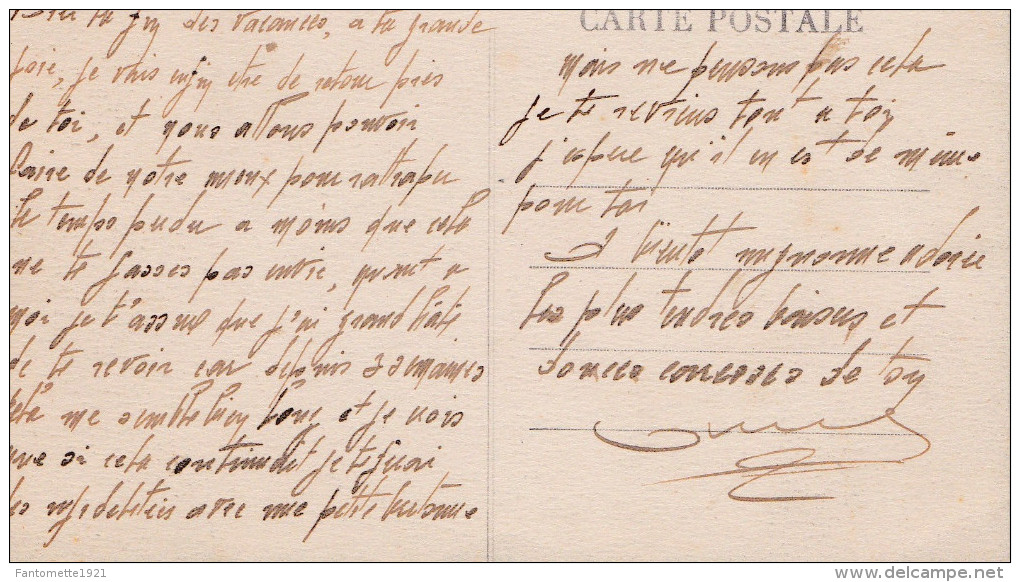 la fin des vacances, a ta grande
joie, je vais enfin etre de retour pres
de toi, et nous allons pouvoir
faire de notre mieux pour rattraper
le temps perdu a moins que cela
ne te fasses pas envie, quant a
moi je t'assure que j'ai grand hâte
de te revoir car depuis 3 semaines
me semble bien long et je crois
que si cela continuait je te ferai
des infidelités avec une petite bretonne
CARTE POSTALE
mais ne pensons pas cela
je te reviens tout a toi
j'espere qu'il en est de même
pour toi
A bientot mignonne adorée
les plus tendres baisers et
douces caresses de ton
Fantomette1921
delcampe.net